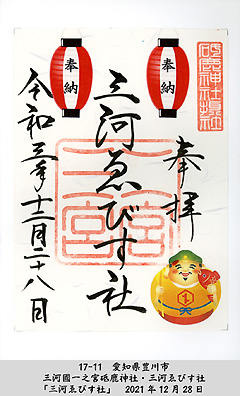 砥鹿神社攝社
奉納
奉納
奉拝
三河ゑびす社
三河
一宮
令和三年十二月二十八日
17-11　愛知県豊川市
三河國一之宮砥鹿神社・三河ゑびす社
「三河ゑびす社」　2021年12月28日